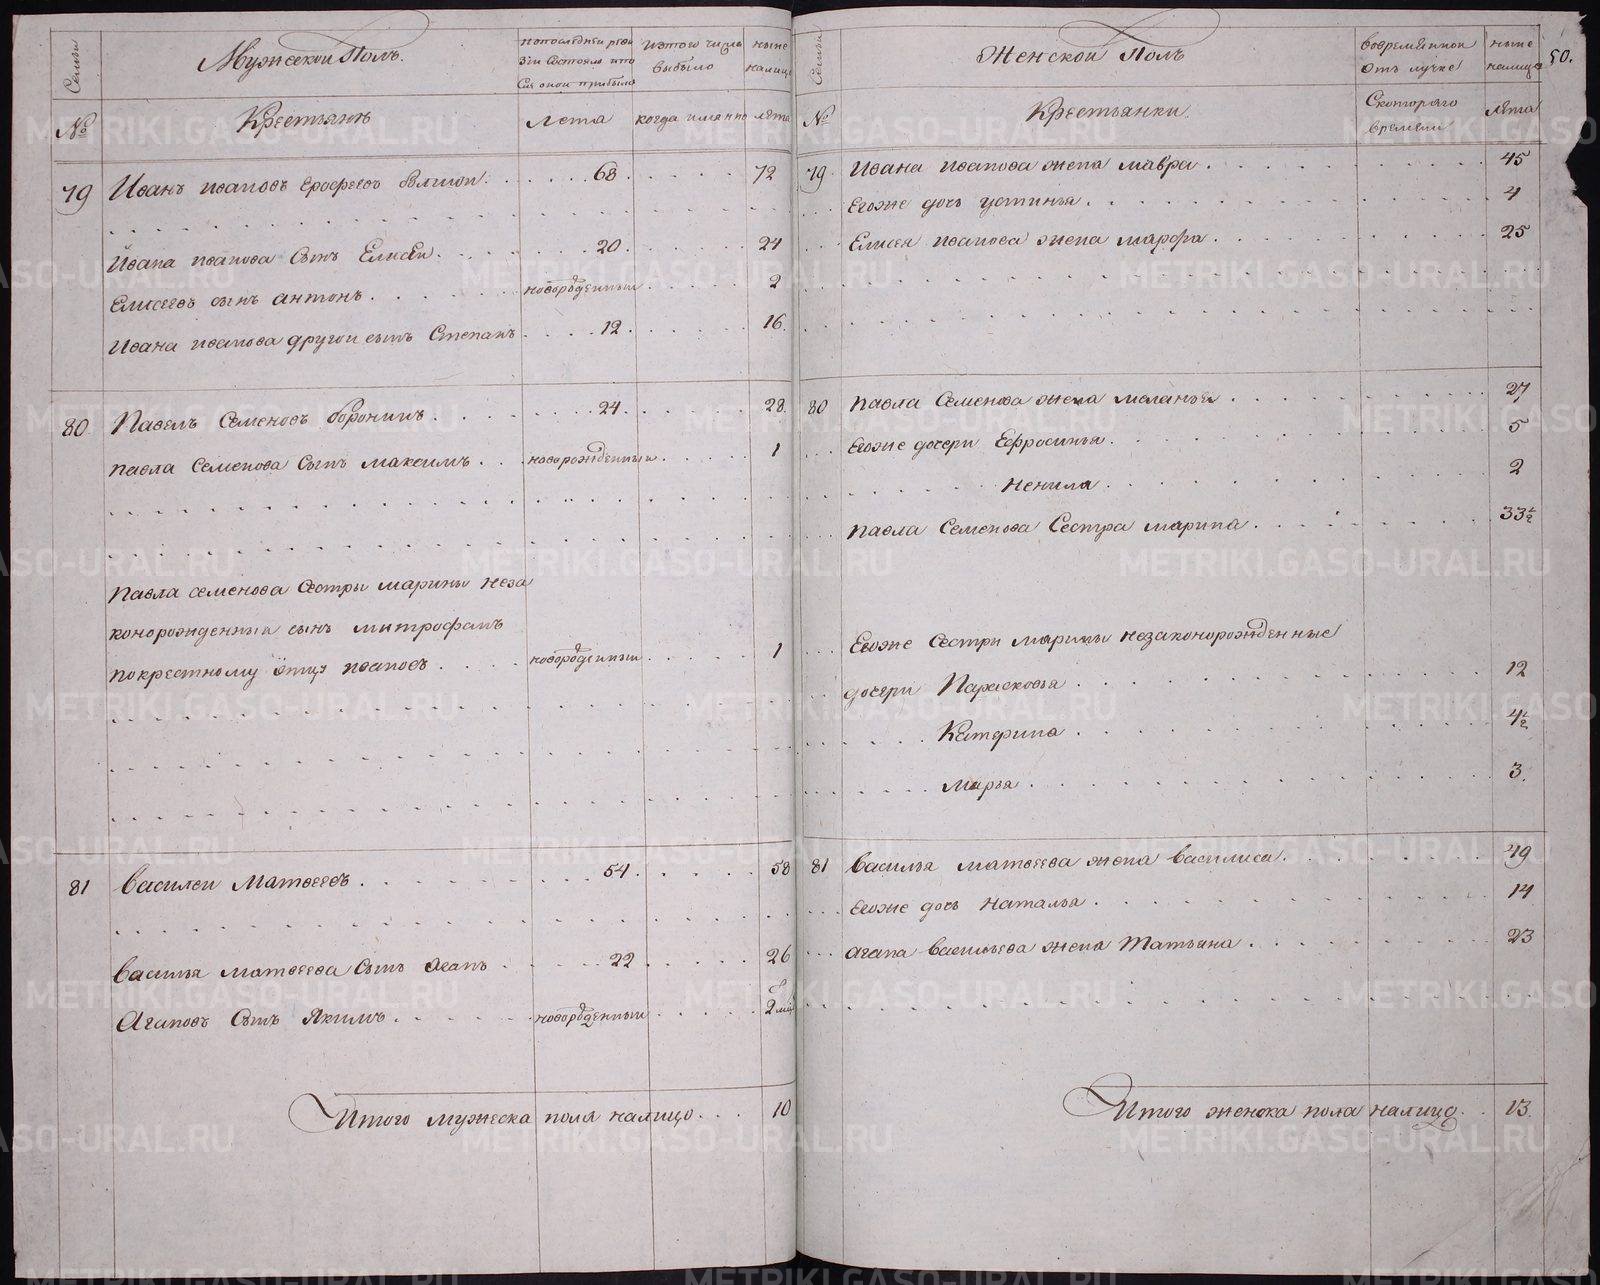 Семьи
Мужеской Полъ.
Крестьянъ
№
Лета
когда имянно
изтого числа
выбыло
ныне
налицо
лета
79 Иванъ ивановъ 68 72
Ивана иванова Сынъ Елисей 20 24
Елисеевъ сынъ антонъ новорожденный 2
Ивана иванова другой сынъ Степанъ 12 16.
80 Павелъ Семеновъ Воронинъ 24 28
Павла Семенова Сынъ максимъ новорожденный 1
Павла семенова Сестры марины неза
конорожденный сынъ митрофанъ
покрестному отцу ивановъ новорожденный 1
81 Василей Матвеевъ 54 58
Василья матвеева Сынъ Агапъ 22 26
Агаповъ Сынъ Якимъ новорожденный 2
Итого мужеска пола налицо 10
Семьи
Женской Полъ
50.
ныне
налицо
№
Крестьянки.
Скотораго
времени
лета
79 Ивана иванова жена мавра 45
Егоже дочь устинья 4
Елисея иванова жена марфа 25
80 Павла Семенова жена меланья 27
Егоже дочери Ефросинья 5
Ненила 2
Павла Семенова Сестра марина 33½
Егоже Сестры марины незаконорожденные
дочери Парасковья 12
Катерина 4½
Марья 3.
81 Василья матвеева жена василиса 49
Егоже дочь Наталья 14
Агапа васильева жена Татьяна 23
Итого женска пола налицо 13.
METRIKI.GASO-URAL.RU